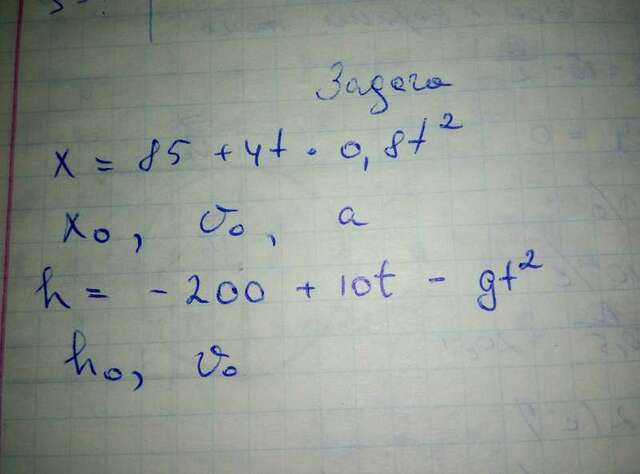 Задача
x = 85 + 4t · 0,8t²
x₀, v₀, a
h = - 200 + 10t - gt²
h₀, v₀